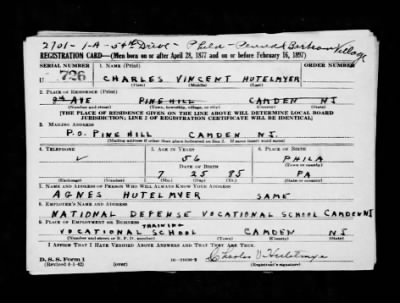 2701-1-A-54th Drive - Phila - Penna
REGISTRATION CARD—(Men born on or after April 28, 1877 and on or before February 16, 1897)
SERIAL NUMBER 1. NAME (Print)
U 726 CHARLES VINCENT HUTELMYER
2. PLACE OF RESIDENCE (Print)
AVE PINE HILL CAMDEN NJ
(Number and street) (Town, township, village, or city) (County) (State)
[THE PLACE OF RESIDENCE GIVEN ON THE LINE ABOVE WILL DETERMINE LOCAL BOARD
JURISDICTION; LINE 2 OF REGISTRATION CERTIFICATE WILL BE IDENTICAL]
3. MAILING ADDRESS
P.O. PINE HILL CAMDEN NJ.
[Mailing address if other than place indicated on line 2. If same insert word same]
4. TELEPHONE 5. AGE IN YEARS 6. PLACE OF BIRTH
56 PHILA
DATE OF BIRTH (Town or county)
7 25 85 PA
(Mo.) (Day) (Yr.) (State or country)
7. NAME AND ADDRESS OF PERSON WHO WILL ALWAYS KNOW YOUR ADDRESS
AGNES HUTELMYER SAME
8. EMPLOYER'S NAME AND ADDRESS
NATIONAL DEFENSE VOCATIONAL SCHOOL CAMDEN NJ
9. PLACE OF EMPLOYMENT OR BUSINESS
VOCATIONAL TRAINING SCHOOL CAMDEN NJ
(Number and street or R. F. D. number) (Town) (County) (State)
I AFFIRM THAT I HAVE VERIFIED ABOVE ANSWERS AND THAT THEY ARE TRUE.
D. S. S. Form 1
(Revised 4-1-42) Charles V. Hutelmyer
(Registrant's signature)